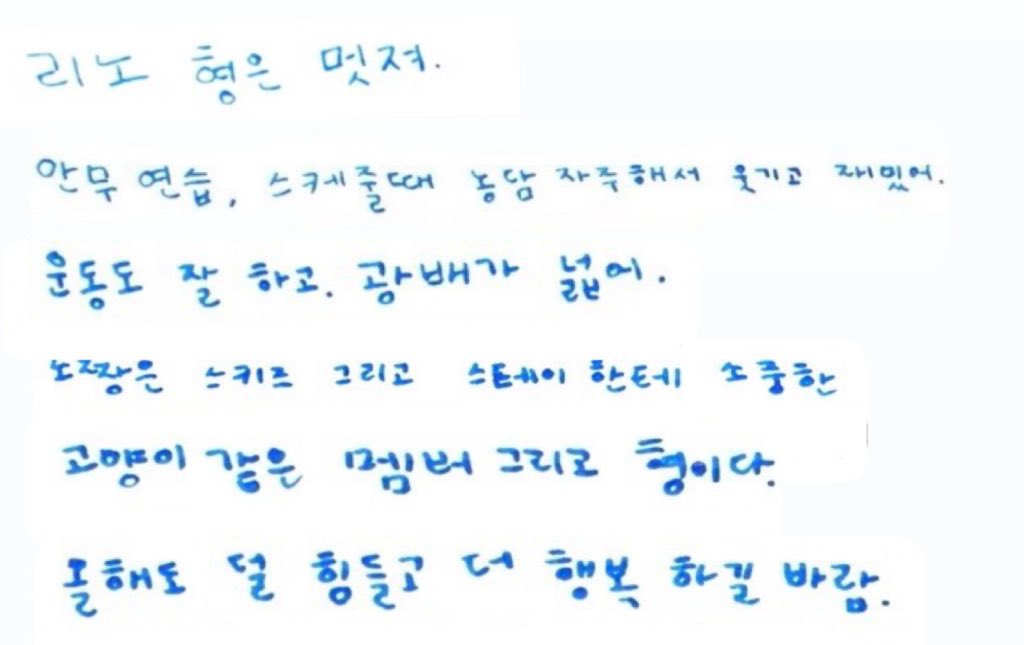 리노 형은 멋져.
안무 연습, 스케줄때 농담 자주해서 웃기고 재밌어.
운동도 잘 하고. 광배가 넓어.
노짱은 스키즈 그리고 스테이 한테 소중한
고양이 같은 멤버 그리고 형이다.
올해도 덜 힘들고 더 행복 하길 바람.